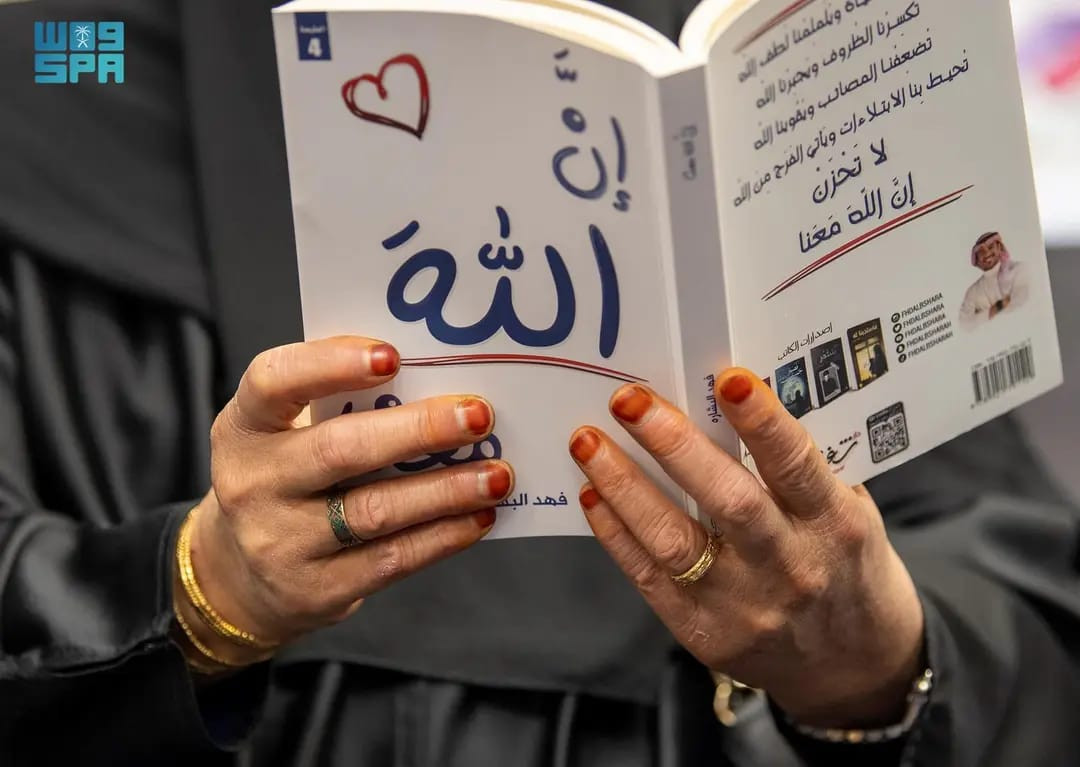 واس
SPA
الطبعة
4
إنَّ
اللهَ
فهد
ويلملمنا لطف الله
تكسرنا الظروف ويجبرنا الله
تضعفنا المصائب ويقوينا الله
تحيط بنا الابتلاءات ويأتي الفرج من الله
لا تَحْزَنْ
إنَّ اللّهَ مَعَنا
إصدارات الكاتب
FHDALBSHARA
FHDALBSHARA
FHDALBSHARA
FHDALBSHARAH
فهد البشاره